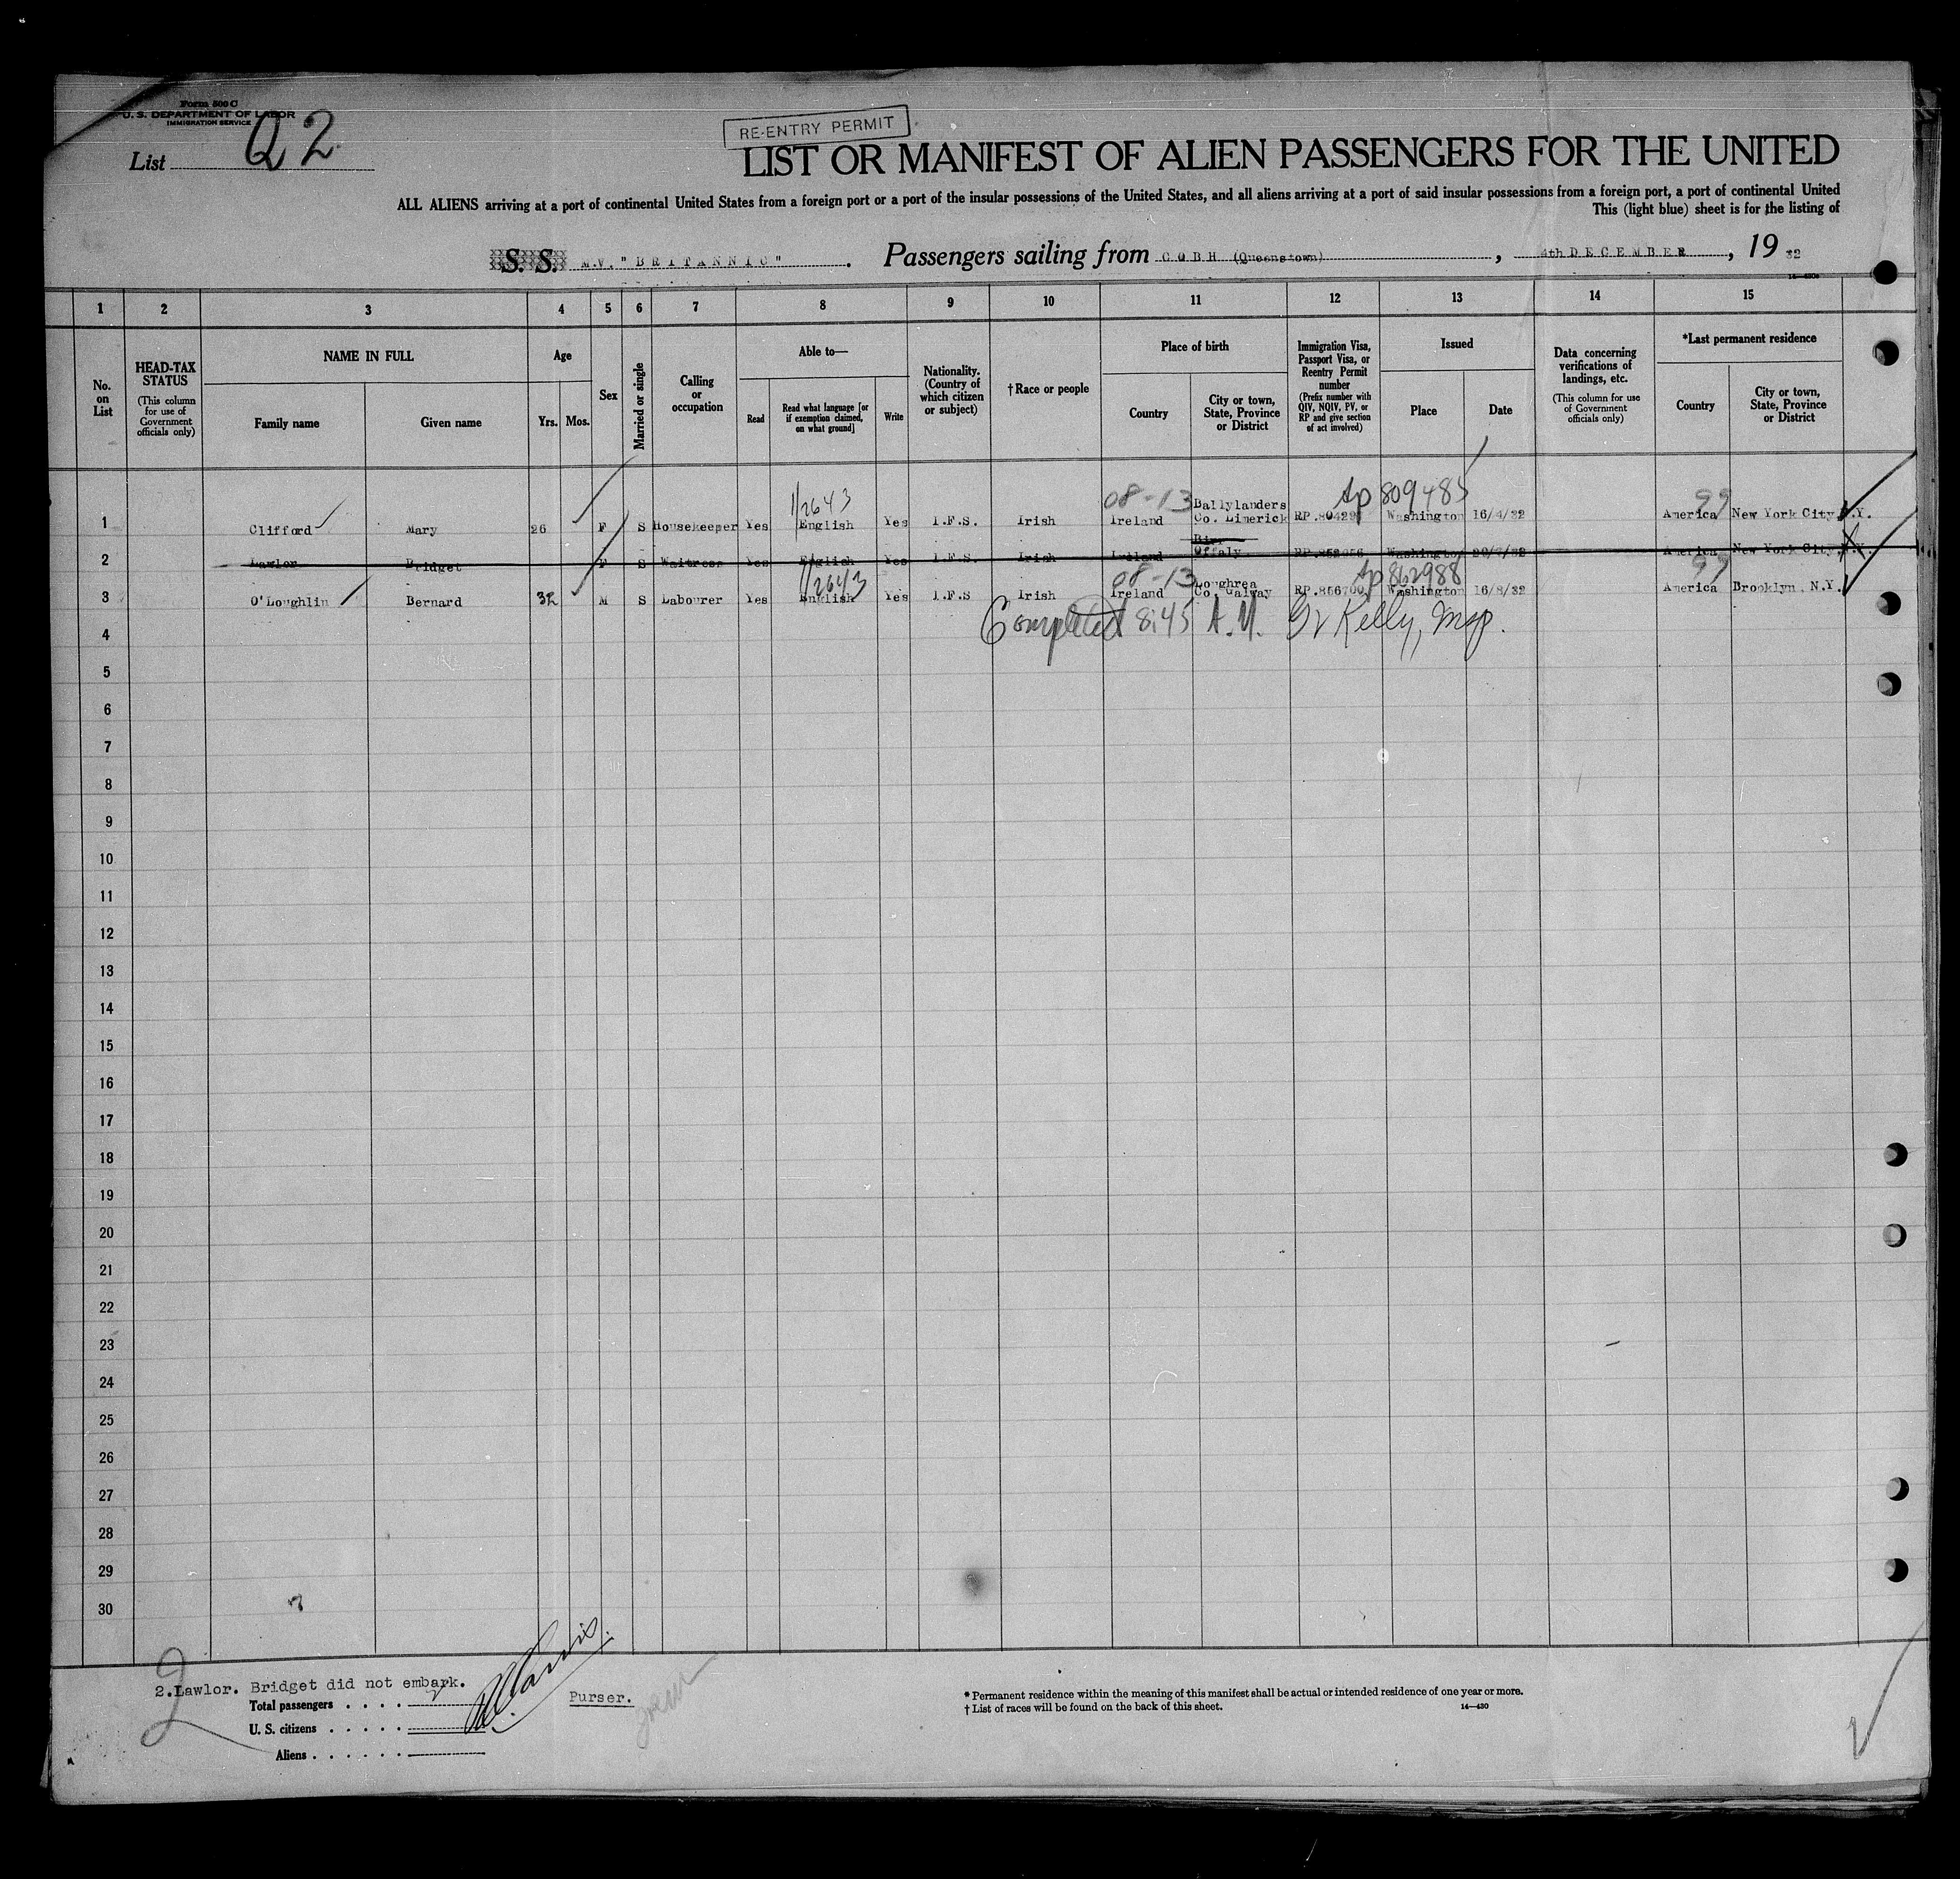 Form 500 C
U. S. DEPARTMENT OF LABOR
IMMIGRATION SERVICE
List Q2
RE-ENTRY PERMIT
LIST OR MANIFEST OF ALIEN PASSENGERS FOR THE UNITED
ALL ALIENS arriving at a port of continental United States from a foreign port or a port of the insular possessions of the United States, and all aliens arriving at a port of said insular possessions from a foreign port, a port of continental United
This (light blue) sheet is for the listing of
S. S. M.V. "BRITANNIC". Passengers sailing from COBH (Queenstown), 4th DECEMBER, 1932
14—430a
1 2 3 4 5 6 7 8 9 10 11 12 13 14 15
No. on List
HEAD-TAX STATUS (This column for use of Government officials only)
NAME IN FULL
Family name
Given name
Age
Yrs.
Mos.
Sex
Married or single
Calling or occupation
Able to—
Read
Read what language [or if exemption claimed, on what ground]
Write
Nationality. (Country of which citizen or subject)
† Race or people
Place of birth
Country
City or town, State, Province or District
Immigration Visa, Passport Visa, or Reentry Permit number (Prefix number with QIV, NQIV, PV, or RP and give section of act involved)
Issued
Place
Date
Data concerning verifications of landings, etc. (This column for use of Government officials only)
*Last permanent residence
Country
City or town, State, Province or District
1/2643 08-13 Ballylanders Ap 809485 99
1 Clifford Mary 26 F S Housekeeper Yes English Yes I.F.S. Irish Ireland Co. Limerick RP.80429 Washington 16/4/32 America New York City, N.Y.
2 Lawlor Bridget F S Waitress Yes English Yes I.F.S. Irish Ireland Offaly Washington America New York City, N.Y.
1/2643 08-13 Loughrea Ap 862988 99
3 O'Loughlin Bernard 32 M S Labourer Yes English Yes I.F.S Irish Ireland Co. Galway RP.856700 Washington 16/8/32 America Brooklyn, N.Y.
4 Completed 8:45 A.M. Kelly, Insp.
5
6
7
8
9
10
11
12
13
14
15
16
17
18
19
20
21
22
23
24
25
26
27
28
29
30
2
2.Lawlor. Bridget did not embark.
Total passengers . . . . 2
U. S. citizens . . . . .
Aliens . . . . . .
Purser.
* Permanent residence within the meaning of this manifest shall be actual or intended residence of one year or more.
† List of races will be found on the back of this sheet. 14—430